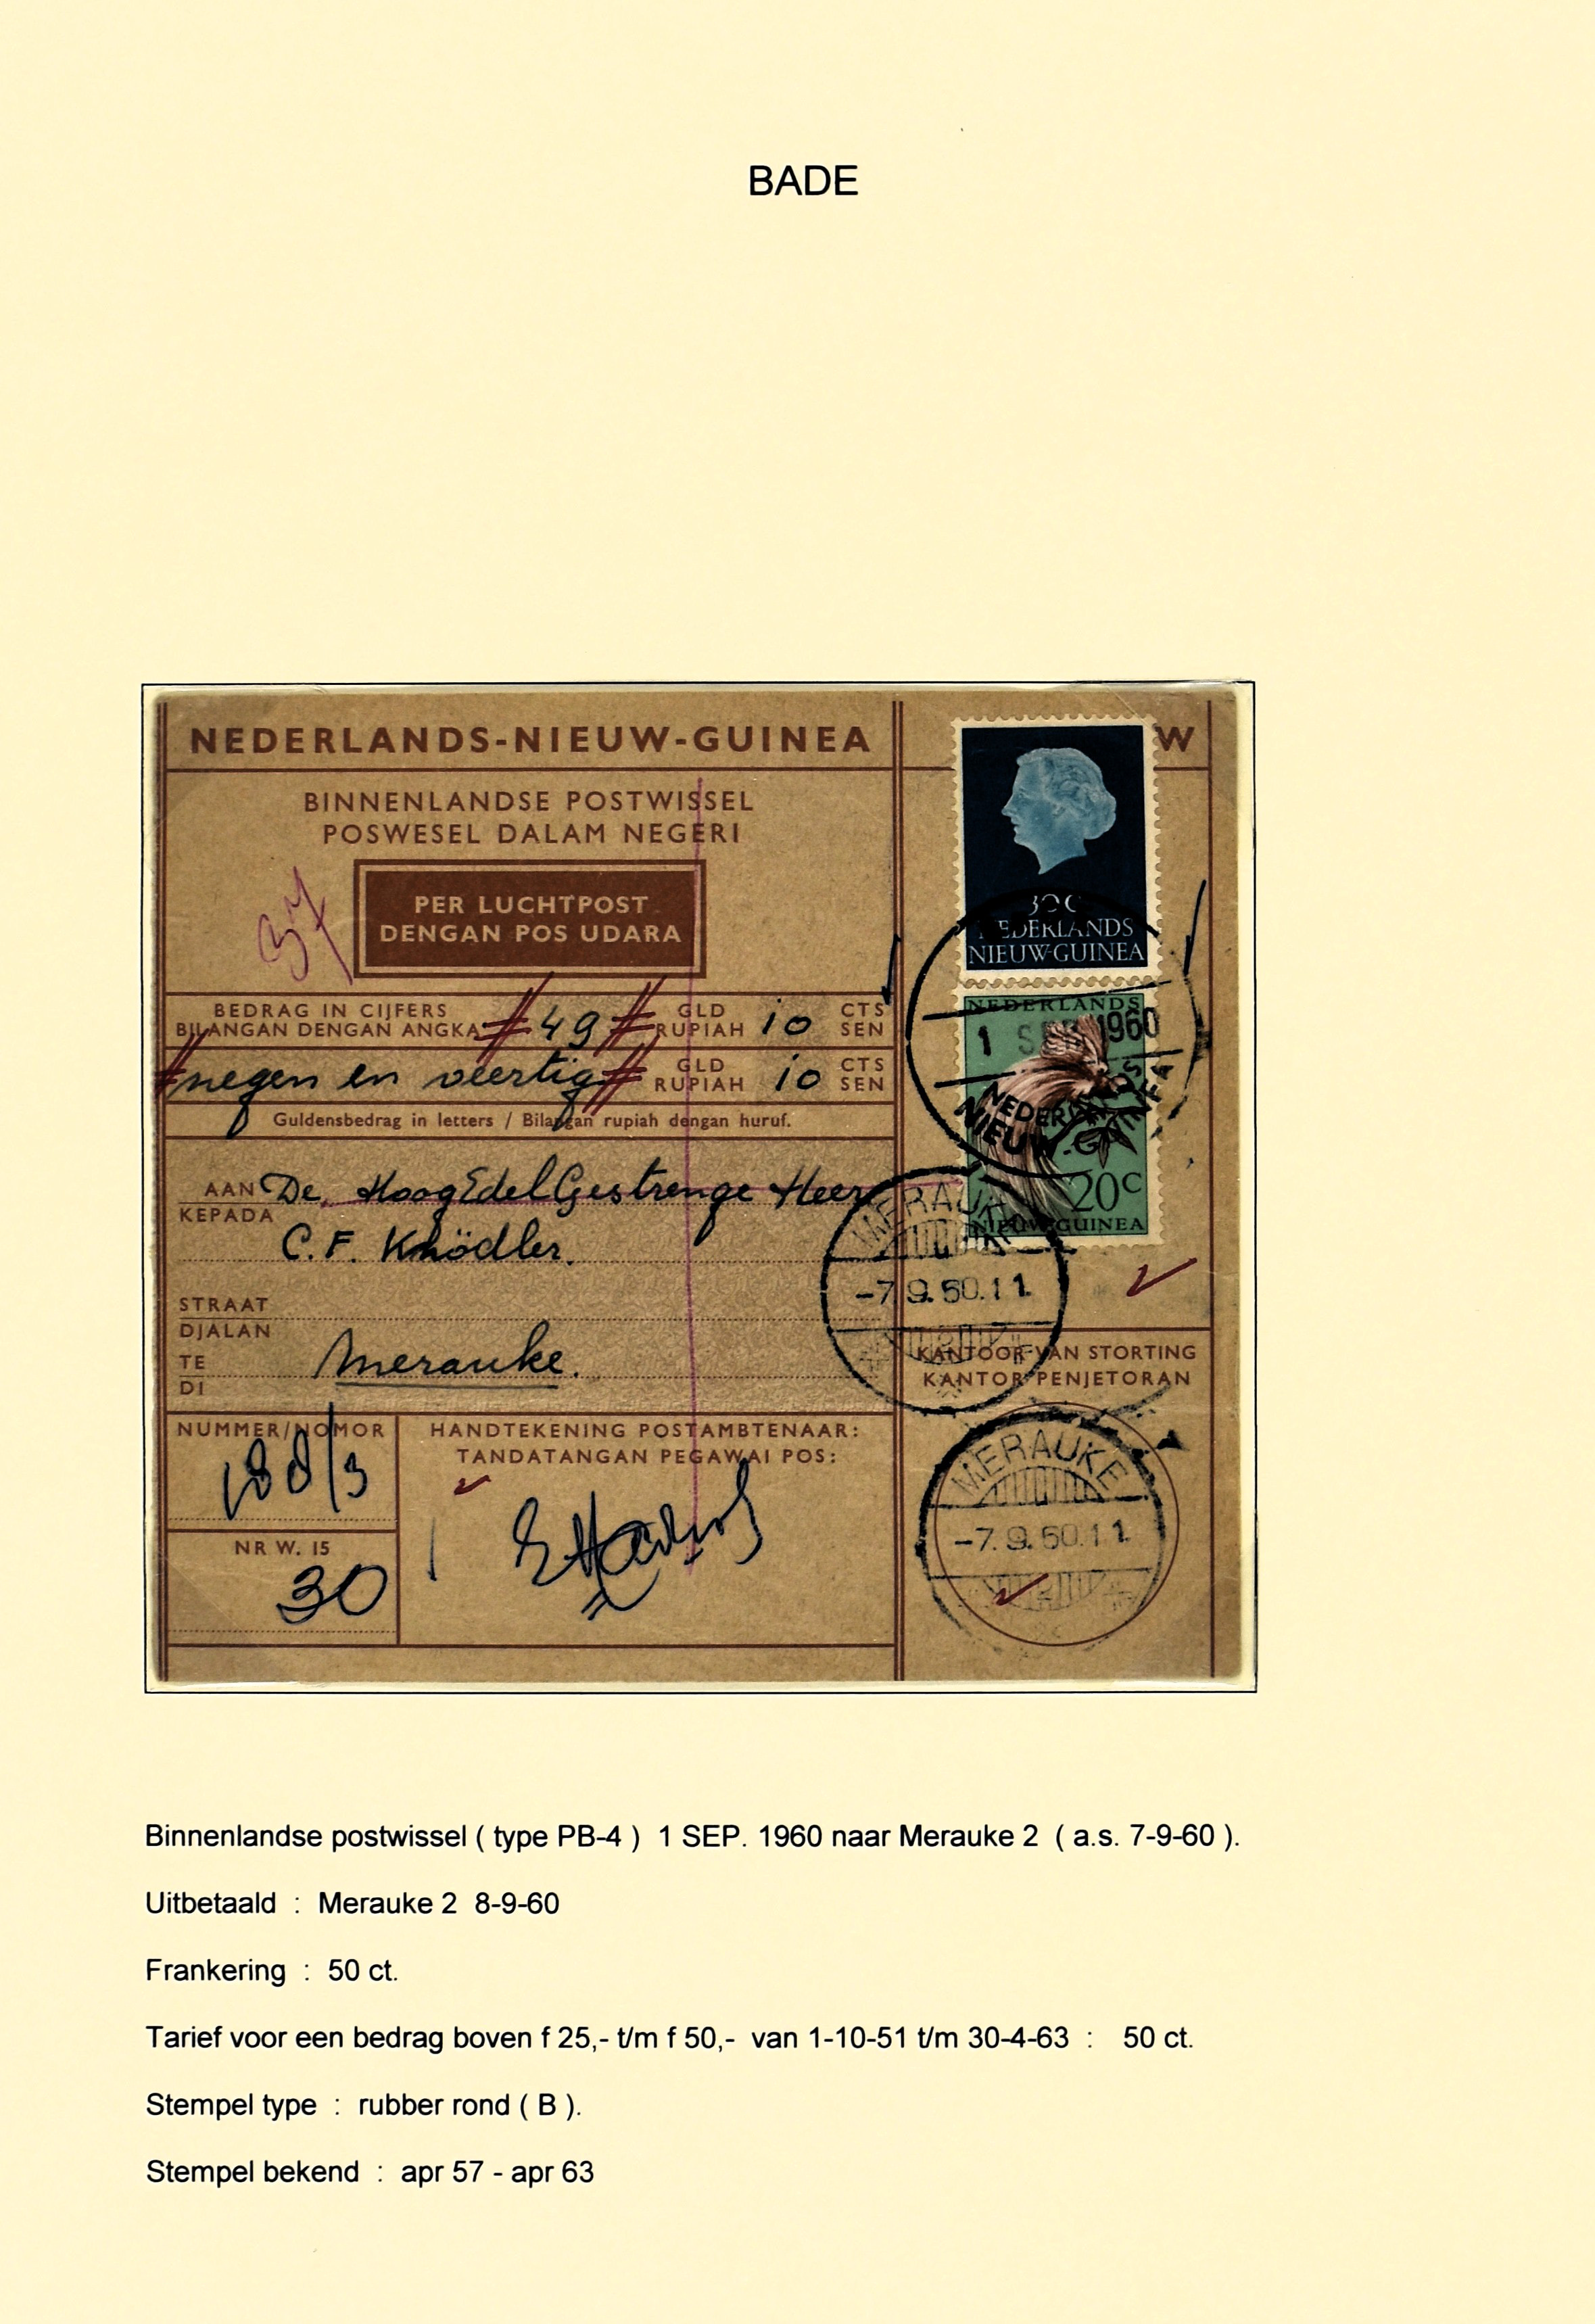 BADE
NEDERLANDS-NIEUW-GUINEA
W
BINNENLANDSE POSTWISSEL
POSWESEL DALAM NEGERI
PER LUCHTPOST
DENGAN POS UDARA
30 C
NEDERLANDS
NIEUW-GUINEA
BEDRAG IN CIJFERS
BILANGAN DENGAN ANGKA
# 49 #
GLD
RUPIAH
10
CTS
SEN
# negen en veertig #
GLD
RUPIAH
10
CTS
SEN
Guldensbedrag in letters / Bilangan rupiah dengan huruf.
NEDERLANDS
1 SEP 1960
NEDERLANDS
NIEUW-GUINEA
20C
NIEUW-GUINEA
AAN
KEPADA
De HoogEdelGestrenge Heer
C. F. Knödler.
STRAAT
DJALAN
TE
DI
Merauke.
MERAUKE
-7.9.60.11.
KANTOOR VAN STORTING
KANTOR PENJETORAN
MERAUKE
-7.9.60.11.
NUMMER/NOMOR
188/3
NR W. 15
30
HANDTEKENING POSTAMBTENAAR:
TANDATANGAN PEGAWAI POS:
Binnenlandse postwissel ( type PB-4 )  1 SEP. 1960 naar Merauke 2  ( a.s. 7-9-60 ).
Uitbetaald  :  Merauke 2  8-9-60
Frankering  :  50 ct.
Tarief voor een bedrag boven f 25,- t/m f 50,-  van 1-10-51 t/m 30-4-63  :   50 ct.
Stempel type  :  rubber rond ( B ).
Stempel bekend  :  apr 57 - apr 63